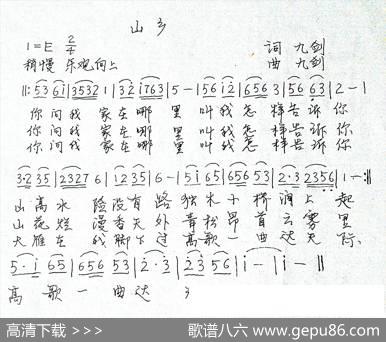 山乡
1=E 2/4
稍慢 乐观向上
词 九剑
曲 九剑
‖: 53 6i | 3532 1 | 32 i763 | 5 - | 56 i2 | 656 3 | 56 63 | 2 - |
你问我 家在哪 里 叫我怎 样告诉你
你问我 家在哪 里 叫我怎 样告诉你
你问我 家在哪 里 叫我怎 样告诉你
3·2 35 | 2327 6 | 12 35 | 6 - | 5i 65 | 656 53 | 2·3 2356 | 1 - :‖
山高水 险没有 路 独木小 桥涧上 起
山花烂 漫香天外 青松昂 首云雾 里
大雁在 我脚下过 高歌一 曲达天 际
5·i 65 | 656 53 | 2·3 | 23 56 | i - | i - ‖
高 歌一 曲达
高清下载 >>>
歌谱八六 www.gepu86.com